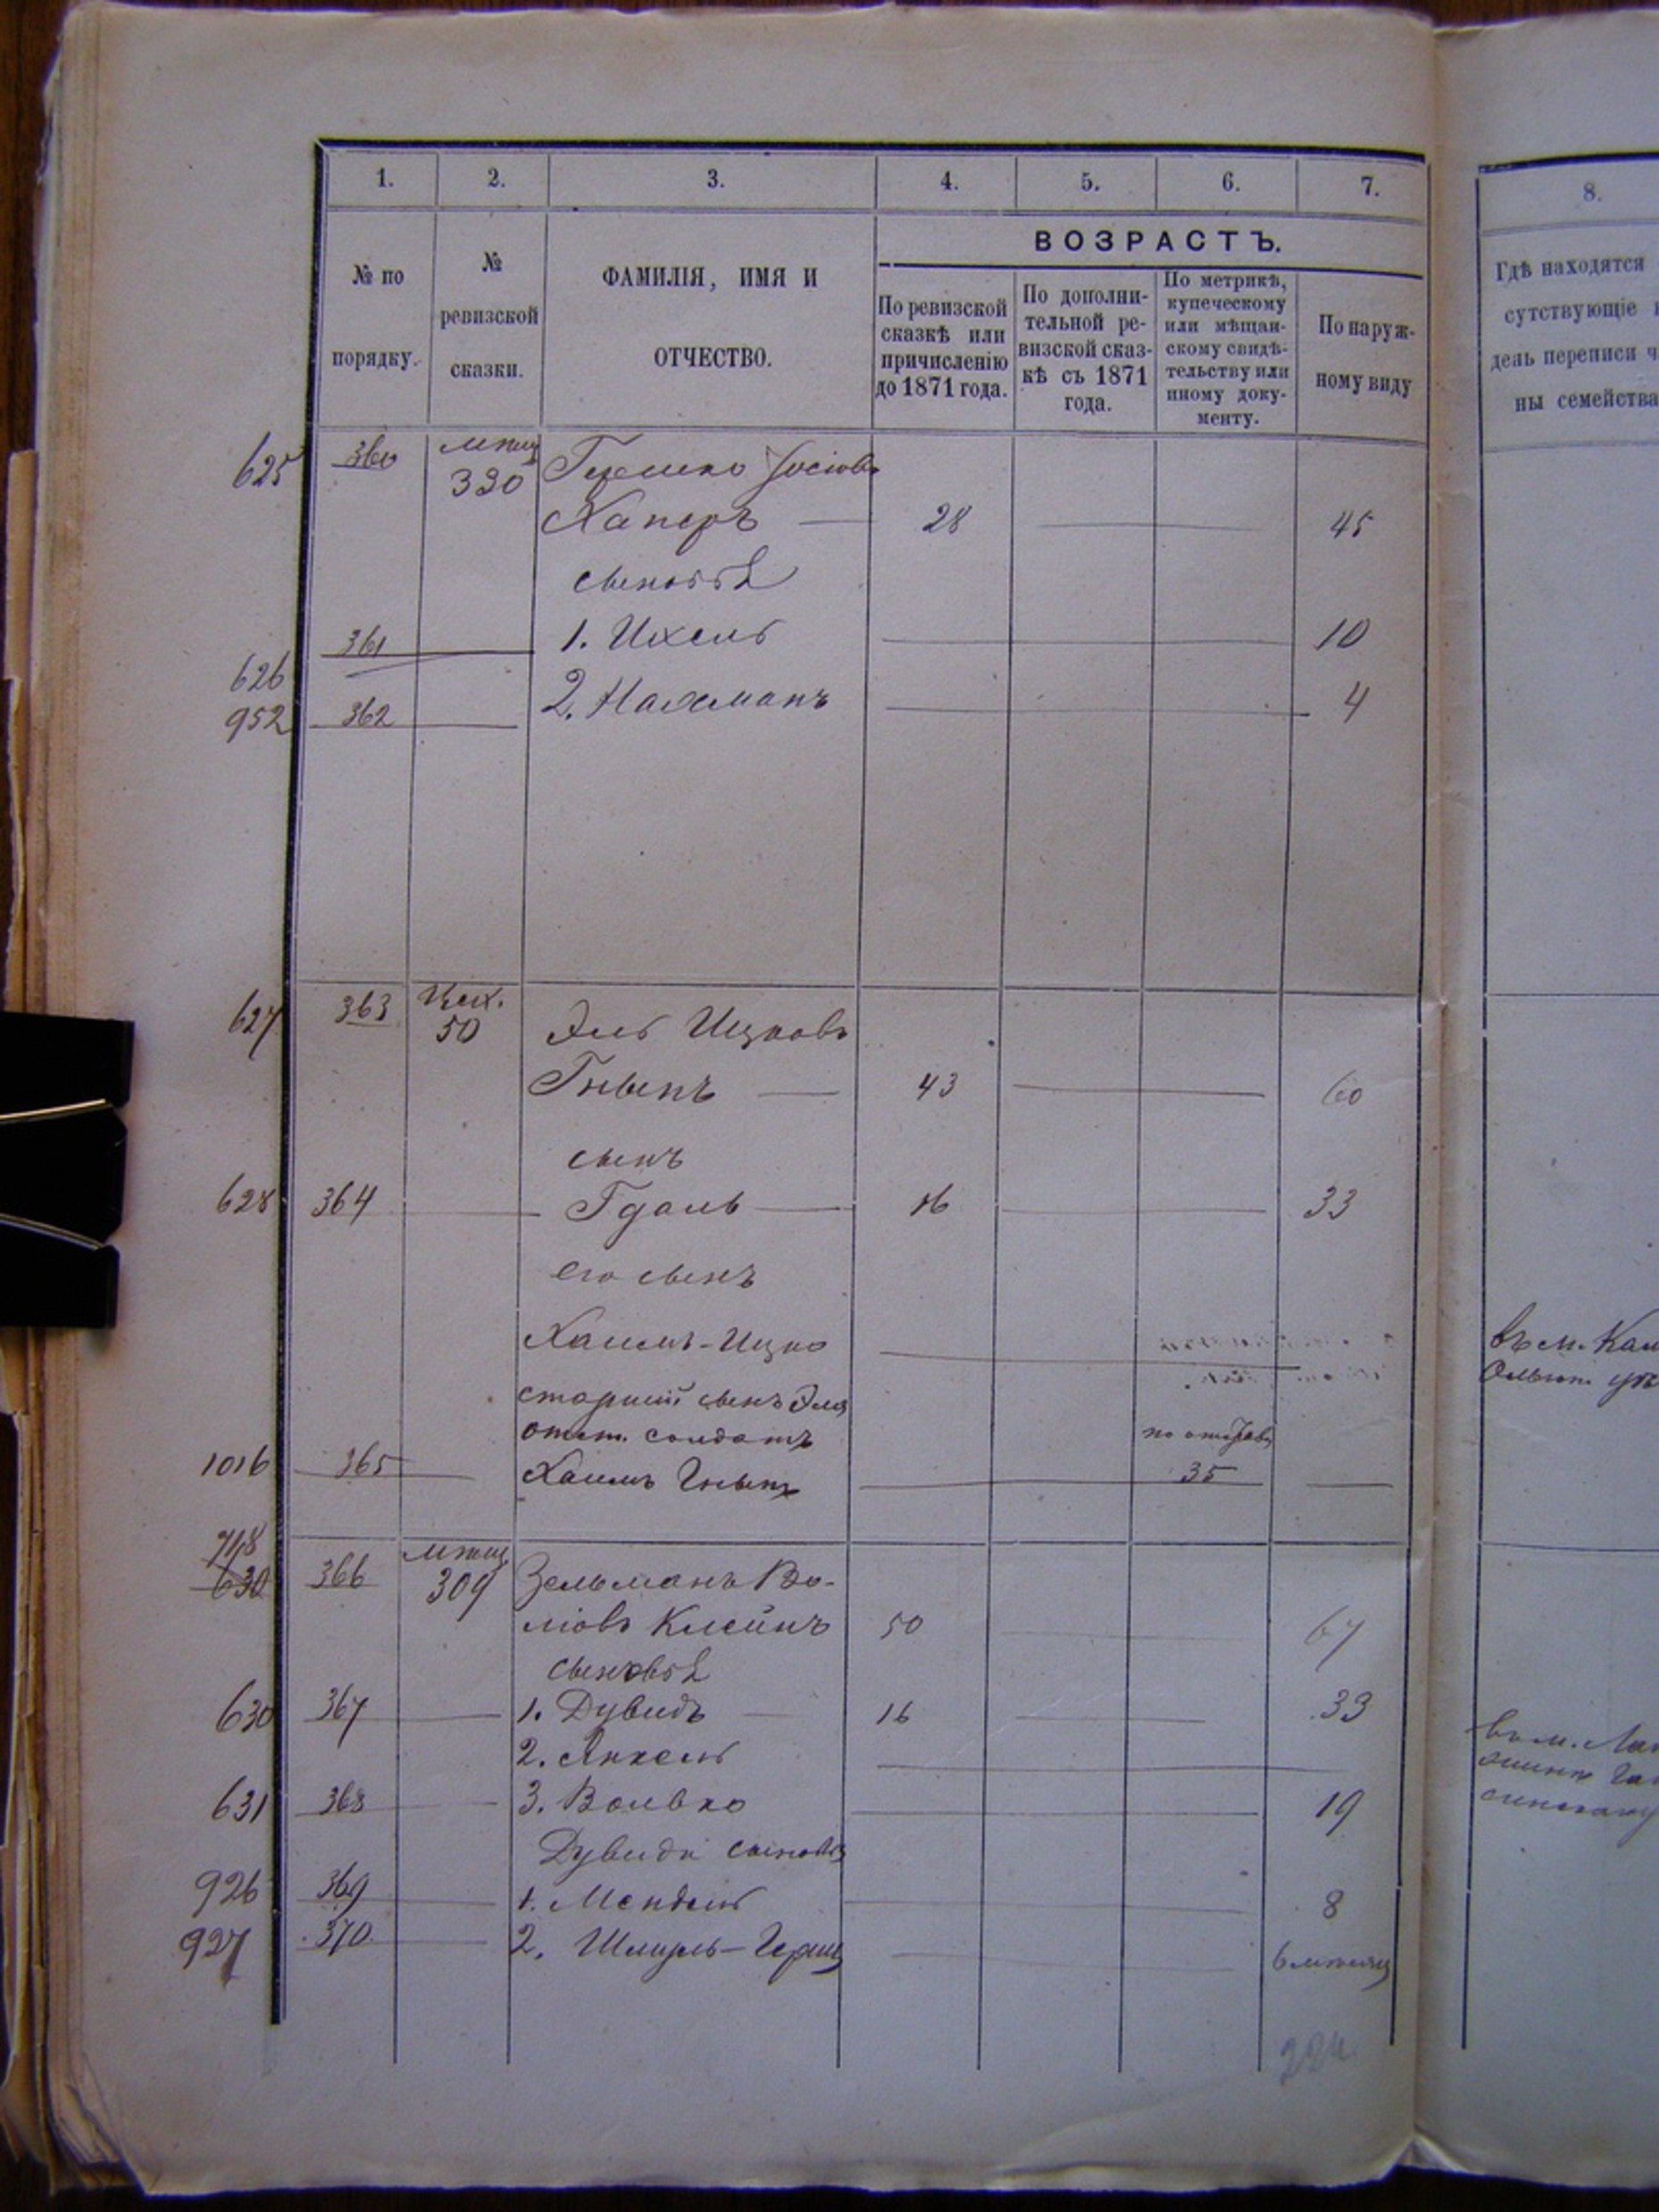 1. 2. 3. 4. 5. 6. 7.
8.
№ по порядку.
№ ревизской сказки.
ФАМИЛІЯ, ИМЯ И ОТЧЕСТВО.
ВОЗРАСТЪ.
По ревизской сказкѣ или причисленію до 1871 года.
По дополнительной ревизской сказкѣ съ 1871 года.
По метрикѣ, купеческому или мѣщанскому свидѣтельству или иному документу.
По наружному виду
Гдѣ находятся
сутствующіе
день переписи ч
ны семейства
625 360 мѣщ
330 Гершко Іосіовъ
Хаперъ 28 45
сыновья
361 1. Ихель 10
626
952 362 2. Нахманъ 4
627 363 Цех.
50 Эль Ицковъ
Гныпъ 43 60
сынъ
628 364 Гдаль 16 33
его сынъ
Хаимъ-Ицко
въ м. Кам
старшій сынъ Эля
отст. солдатъ
1016 365 Хаимъ Гныпъ 35
718
630 366 мѣщ
309 Зельманъ Во-
ліовъ Клейнъ 50 67
сыновья
630 367 1. Дувидъ 16 33
2. Анкель
631 368 3. Волько 19
Дувида сыновья
926 369 1. Мендель 8
927 370 2. Шмуль-Герш 6 мѣсяц
224